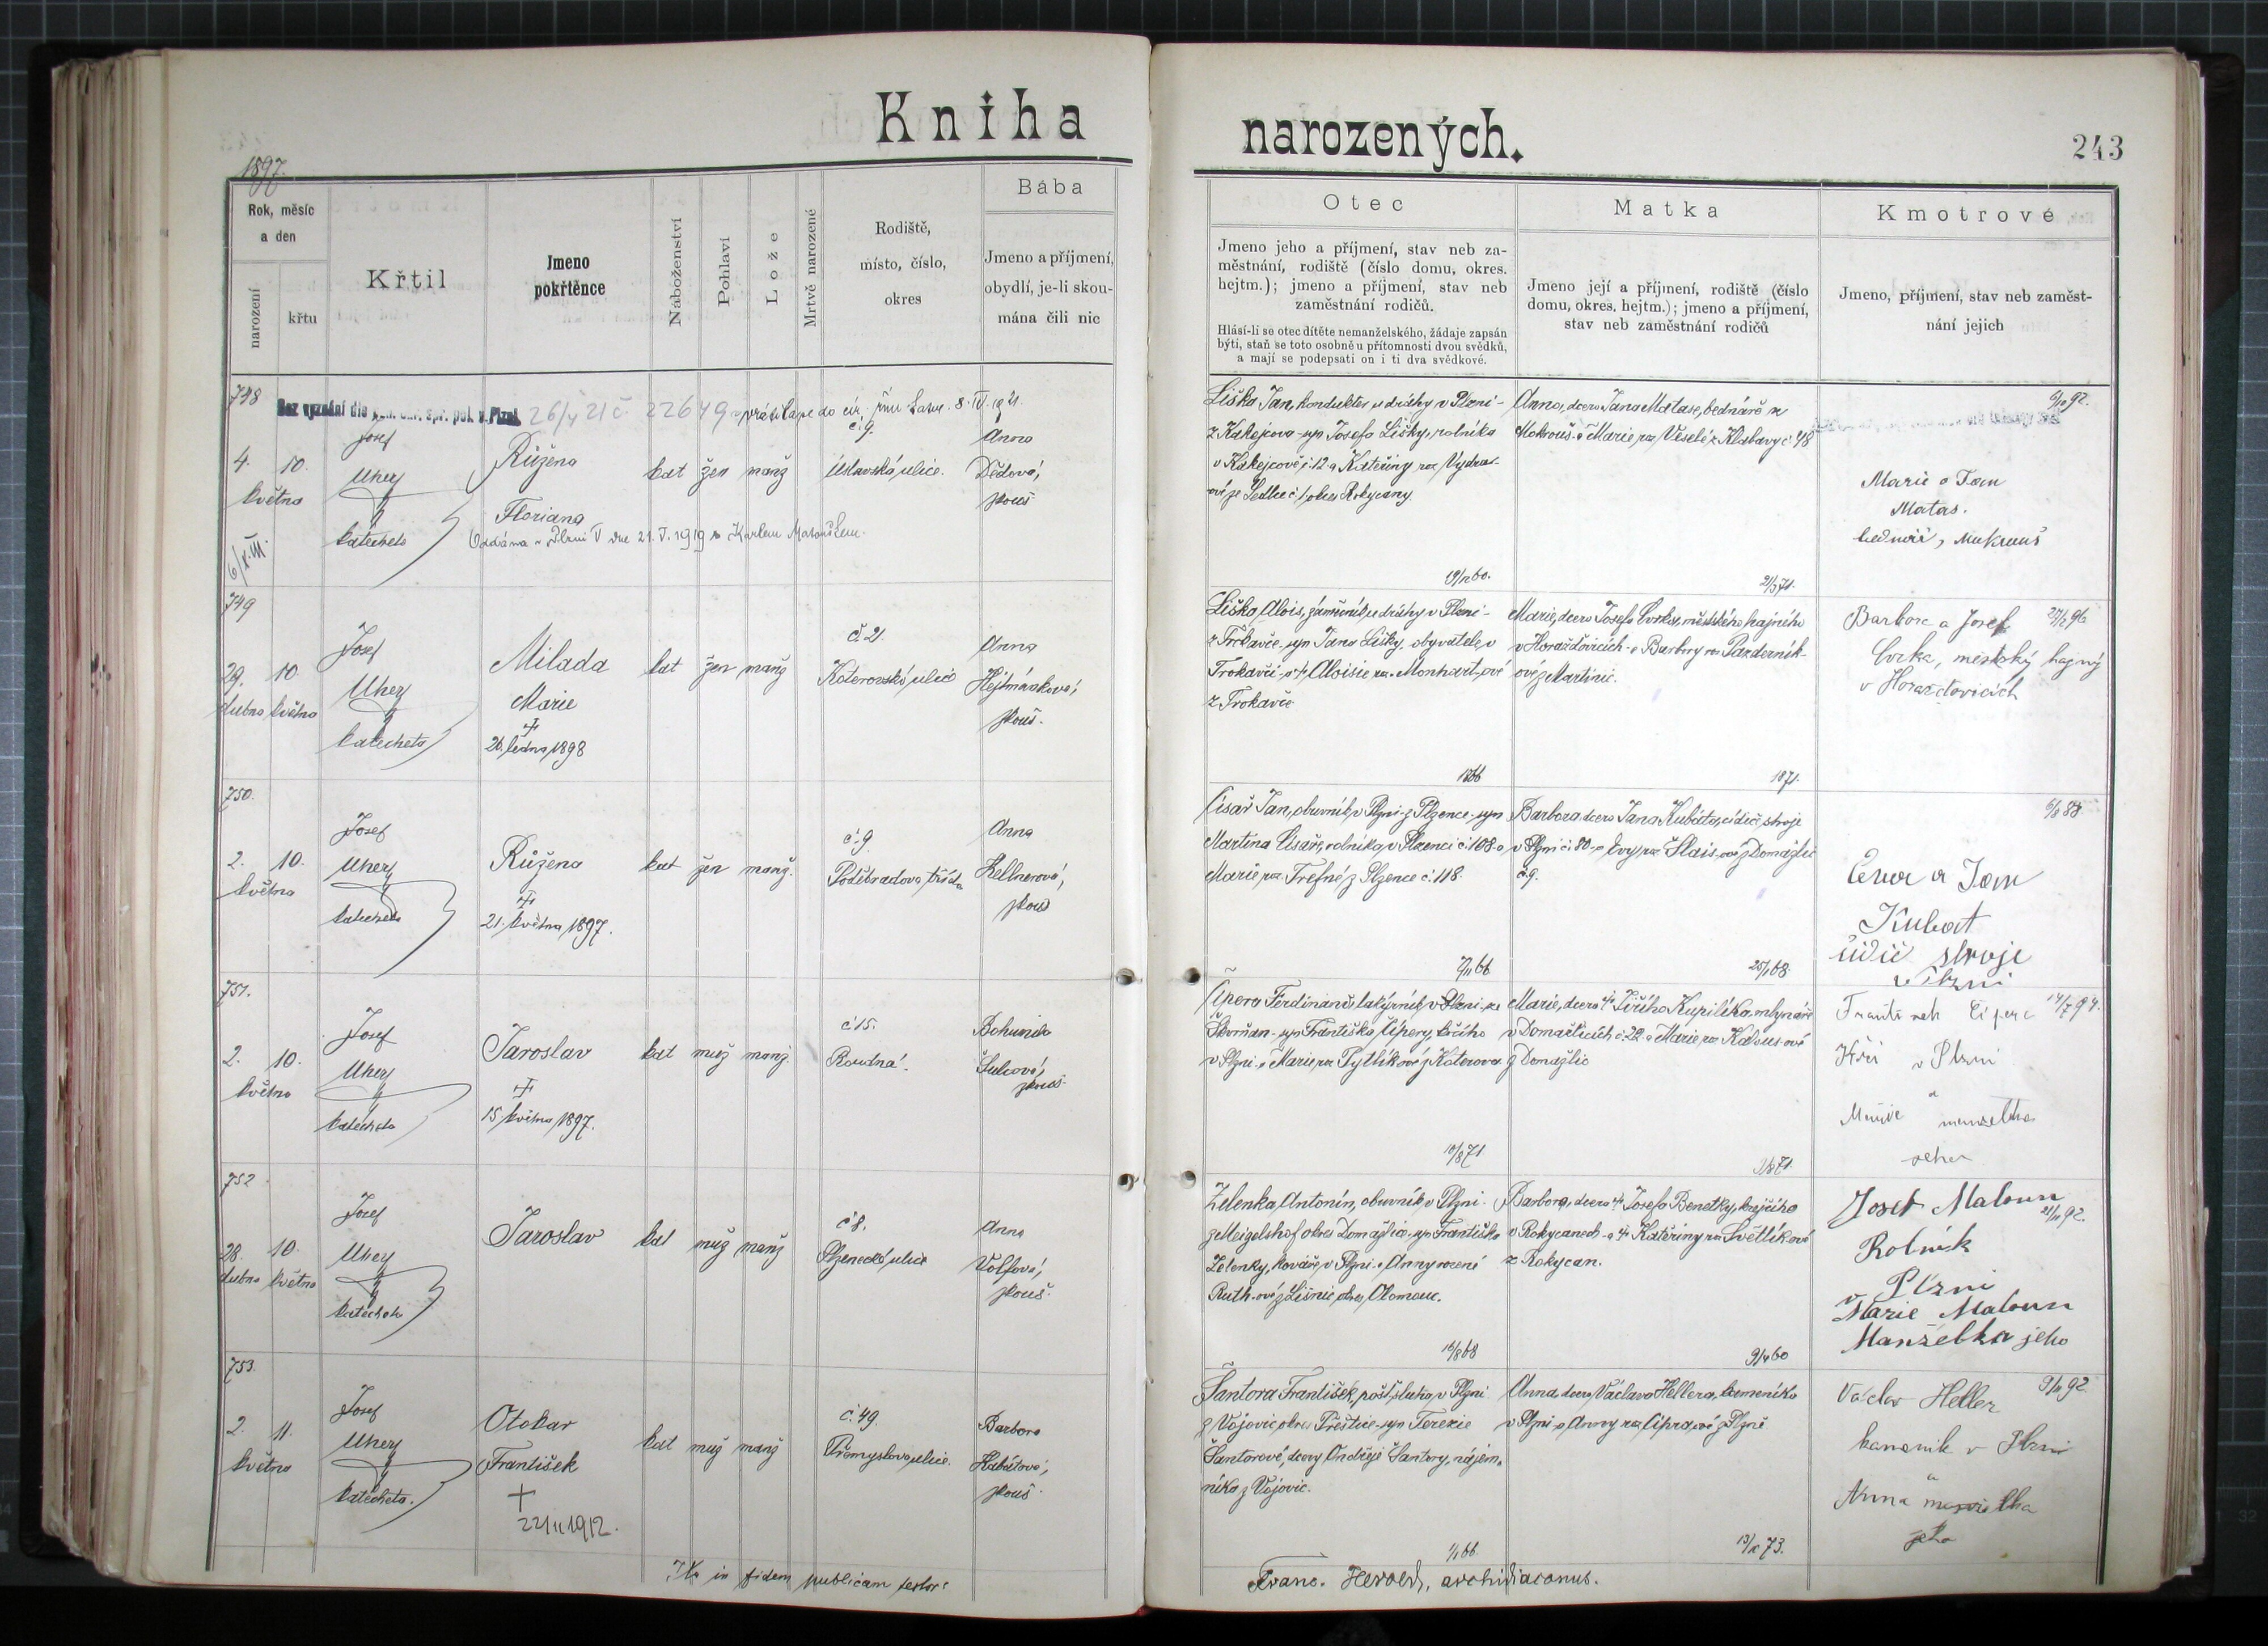 Kniha narozených.
243
1897.
Rok, měsíc
a den
narození
křtu
Křtil
Jmeno
pokřtěnce
Náboženství
Pohlaví
Lože
Mrtvě narozené
Rodiště,
místo, číslo,
okres
Bába
Jmeno a příjmení,
obydlí, je-li skou-
mána čili nic
Otec
Jmeno jeho a příjmení, stav neb za-
městnání, rodiště (číslo domu, okres.
hejtm.); jmeno a příjmení, stav neb
zaměstnání rodičů.
Hlásí-li se otec dítěte nemanželského, žádaje zapsán
býti, staň se toto osobně u přítomnosti dvou svědků,
a mají se podepsati on i ti dva svědkové.
Matka
Jmeno její a příjmení, rodiště (číslo
domu, okres. hejtm.); jmeno a příjmení,
stav neb zaměstnání rodičů
Kmotrové
Jmeno, příjmení, stav neb zaměst-
nání jejich
748
Bez vyznání dle
pol. v Plzni 26/V 21 č. 22679
4. 10.
května
Josef
Uher
katecheta
Růžena
Floriana
Oddána v Plzni V dne 21. V. 1919 s Karlem Matouškem.
kat žen manž
č. 9.
Úslavská ulice.
Anna
Dědová,
zkouš
Liška Jan, kondukter u dráhy v Plzni -
z Kakejcova - syn Josefa Lišky, rolníka
v Kakejcově č. 12 a Kateřiny roz. Vydra-
ové ze Sedlce č. 1, okres Rokycany.
Anna, dcera Jana Matase, bednáře v
Mokrouš. a Marie, roz. Veselé z Klabavy č. 48
Marie a Jan
Matas.
bednář, Mokrouš
749
29. 10.
dubna května
Josef
Uher
katecheta
Milada
Marie
26. ledna 1898
kat žen manž
č. 21.
Koterovská ulice
Anna
Hejtmánková,
zkouš.
Liška Alois, zámečník u dráhy v Plzni -
z Trokavče - syn Jana Lišky, obyvatele v
Trokavči - a Aloisie roz. Monhart-ové
z Trokavče
Marie, dcera Josefa Cvrka, městského hajného
v Horažďovicích - a Barbory roz. Pazderník-
ové z Martinic.
Barbora a Josef
Cvrka, městský hajný
v Horažďovicích
1866
1871.
750.
2. 10.
května
Josef
Uher
katecheta
Růžena
21. května 1897.
kat žen manž.
č. 9
Poděbradova třída
Anna
Kellnerová,
zkouš
Císař Jan, obuvník v Plzni - z Plzence, syn
Martina Císaře, rolníka v Plzenci č. 108 a
Marie roz. Trefné z Plzence č. 118.
Barbora dcera Jana Kubáta, řídič stroje
v Plzni č. 80 - a Evy, roz. Šlais-ové z Domažlic
č. 9.
Eva a Jan
Kubat
řídič stroje
v Plzni
751.
2. 10.
května
Josef
Uher
katecheta
Jaroslav
15. května 1897.
kat muž manž
č. 15.
Roudná.
Bohumila
Šulcová,
zkouš.
Čipera Ferdinand, lakýrník v Plzni - ze
Skvrňan - syn Františka Čipery, kočího
v Plzni - a Marie roz. Pytlíkové z Koterova
Marie, dcera Jiřího Kupilíka, mlynáře
v Domažlicích č. 22 - a Marie, roz. Kabous-ové
z Domažlic
Čipera
v Plzni
a
manželka
752
28. 10.
dubna května
Josef
Uher
katecheta
Jaroslav
kat muž manž
č. 8.
Plzenecká ulice
Anna
Volfová,
zkouš.
Zelenka Antonín, obuvník v Plzni -
z Meigelshof okres Domažlice - syn Františka
Zelenky, kováře v Plzni - a Anny rozené
Ruth-ové z Lišnic, okres Olomouc.
Barbora, dcera Josefa Benetky, krejčího
v Rokycanech - a Kateřiny roz. Světlíkové
z Rokycan.
Josef Maloun
Rolník
v Plzni
Marie Maloun
Manželka jeho
753.
2. 11.
května
Josef
Uher
katecheta.
Otokar
František
kat muž manž
č. 49.
Přemyslova ulice.
Barbora
Kabátová,
zkouš.
Šantora František, pošt. sluha v Plzni
z Vojovic okres Přeštice - syn Terezie
Šantorové, dcery Ondřeje Šantory, nájem-
níka z Vojovic.
Anna dcera Václava Hellera, kameníka
v Plzni a Anny roz. Ciprová z Plzně
Václav Heller
kameník v Plzni
a
Anna manželka
jeho
Ita in fidem publicam testor:
Franc. Herold, archidiaconus.